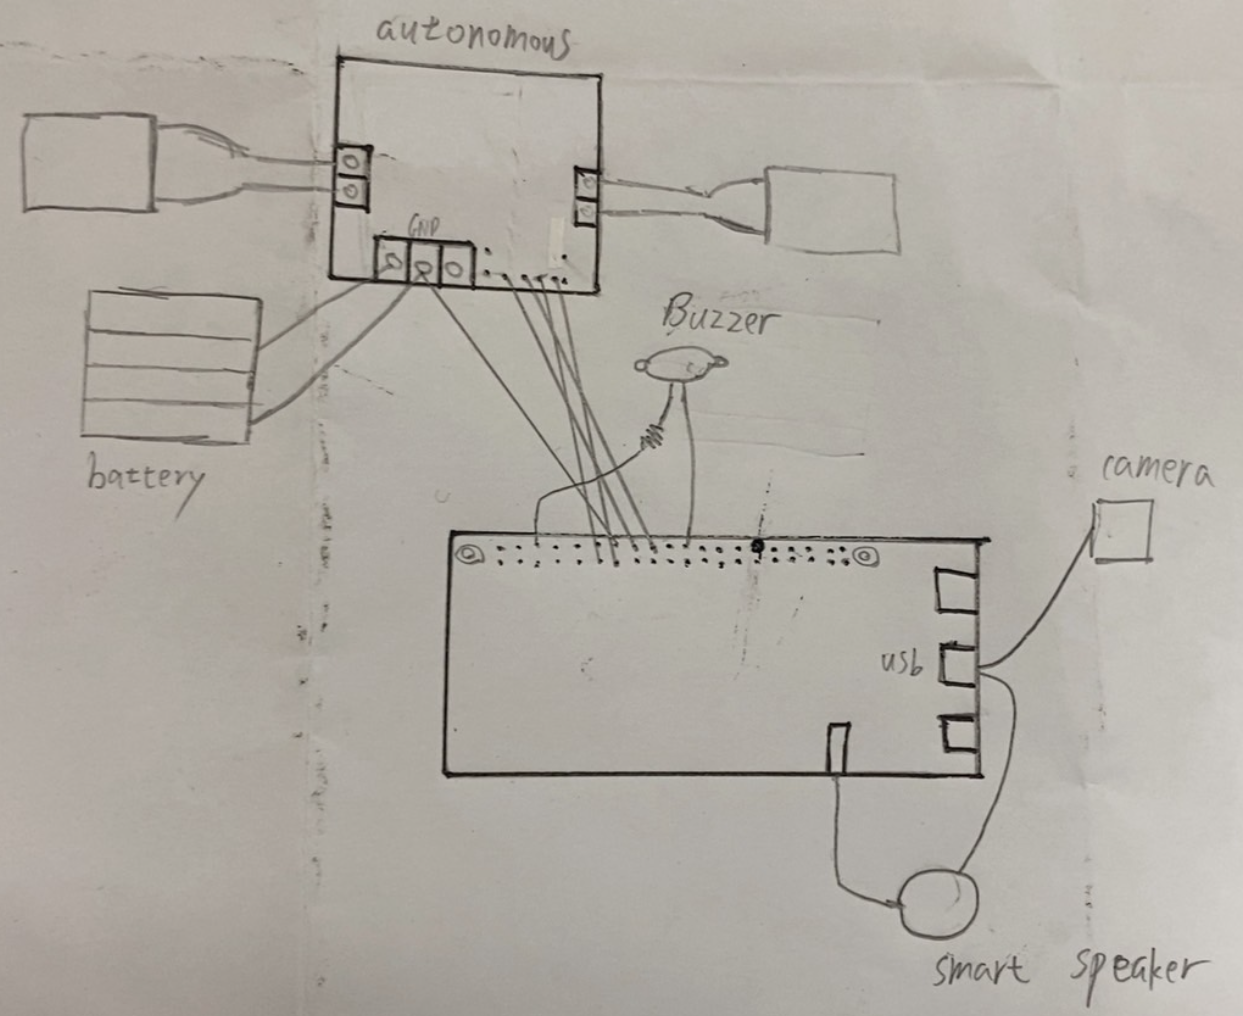 autonomous
GND
Buzzer
battery
camera
usb
smart speaker